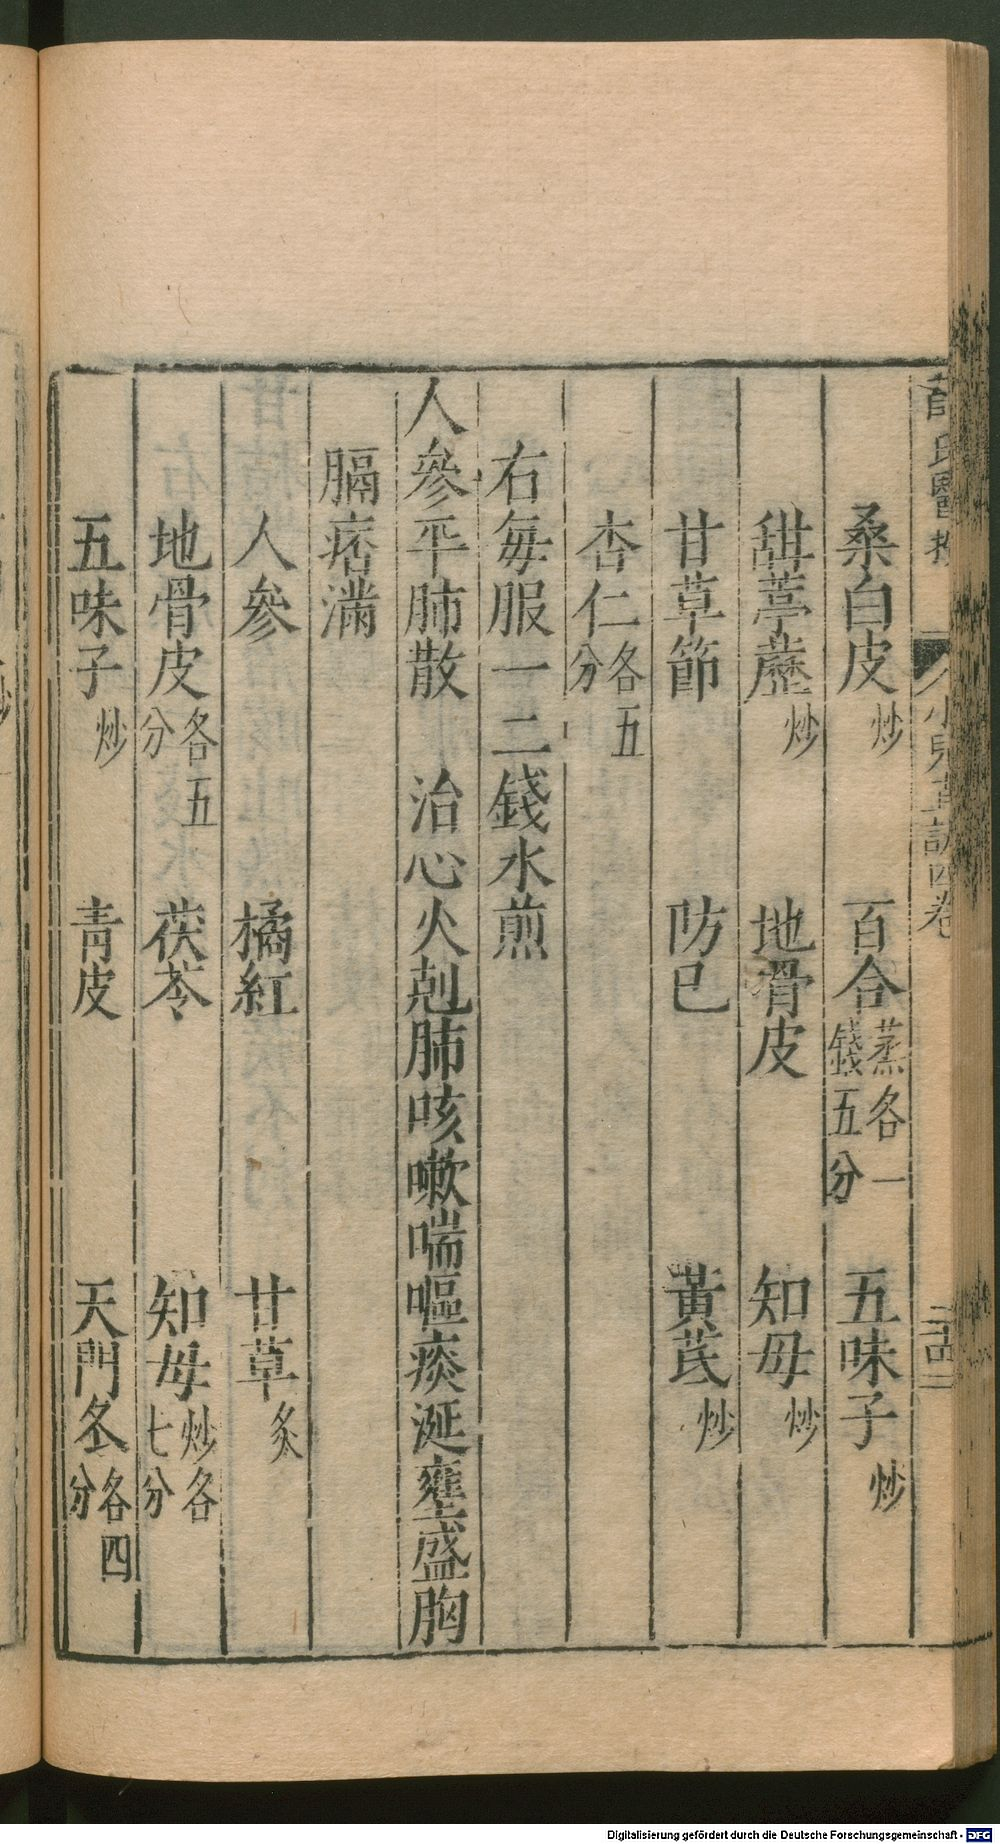 桑白皮炒 百合蒸各一錢五分 五味子炒
甜葶藶炒 地骨皮 知母炒
甘草節 防已 黃芪炒
杏仁各五分
右每服一二錢水煎
人參平肺散 治心火剋肺咳嗽喘嘔痰涎壅盛胸
膈痞滿
人參 橘紅 甘草炙
地骨皮各五分 茯苓 知母炒各七分
五味子炒 青皮 天門冬各四分
Digitalisierung gefördert durch die Deutsche Forschungsgemeinschaft - DFG